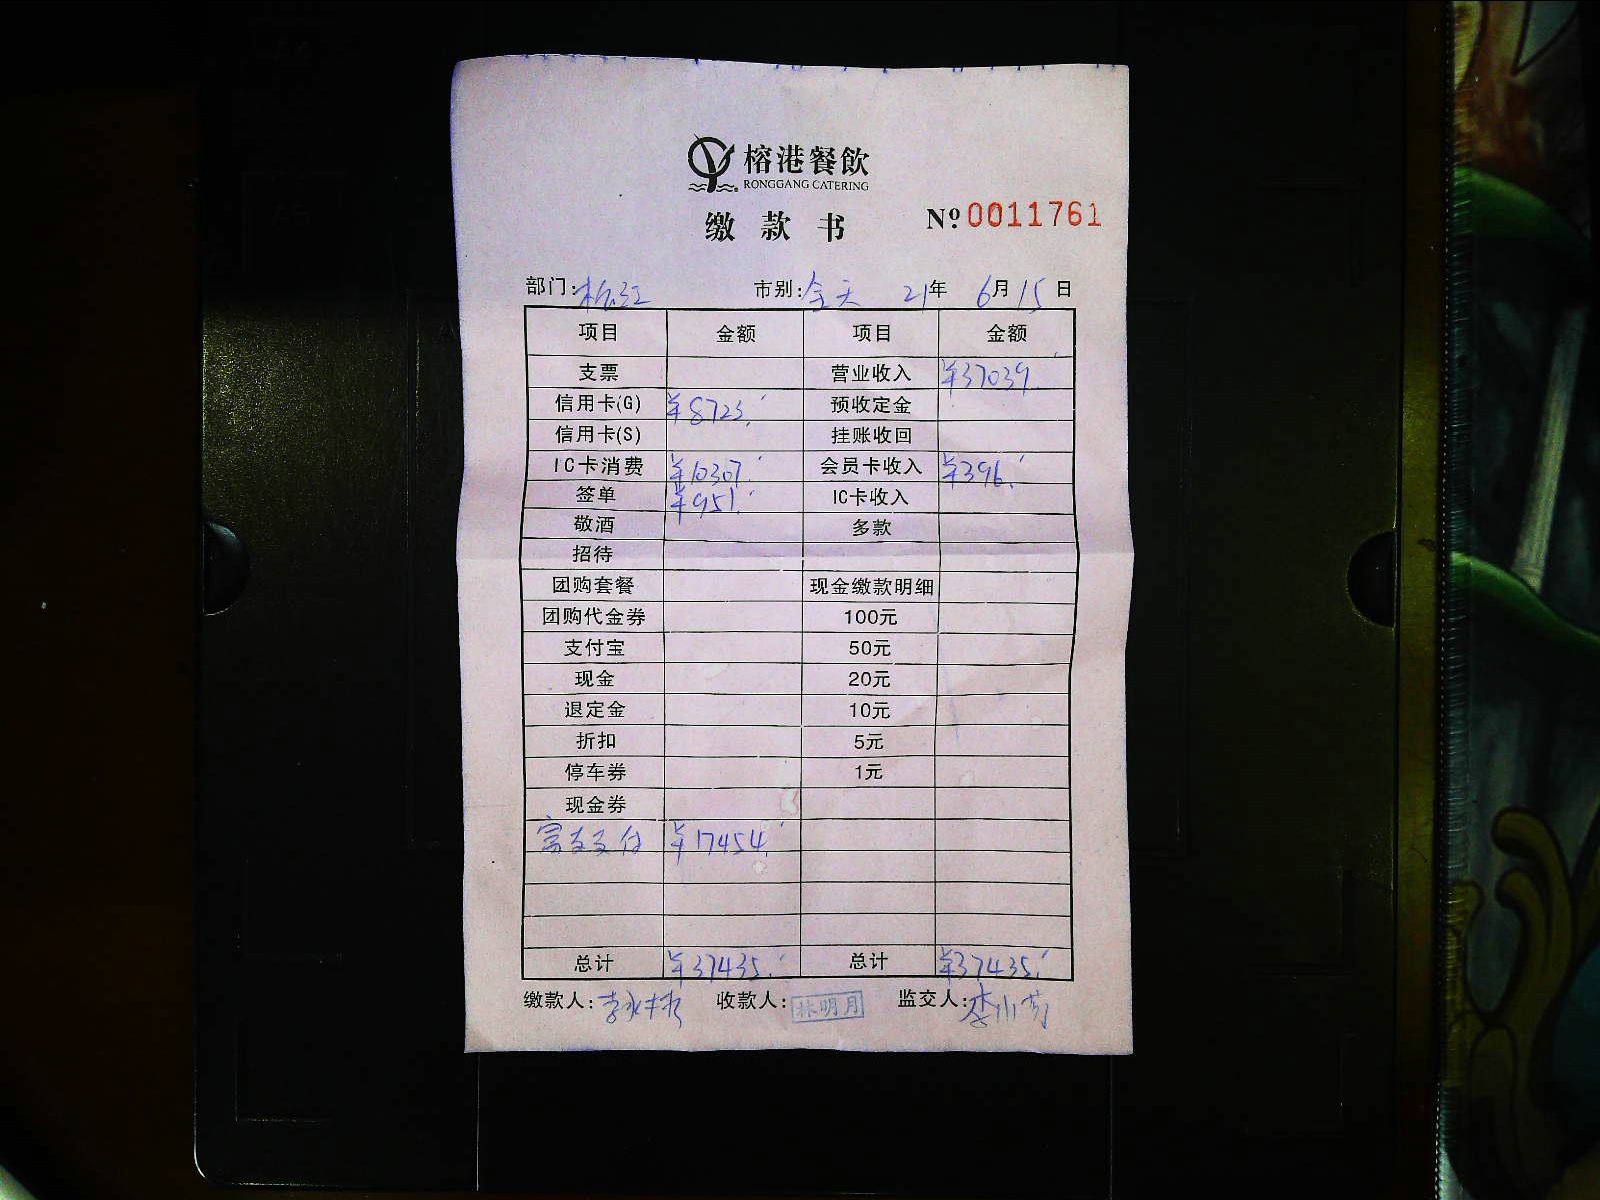 榕港餐飲
RONGGANG CATERING
缴款书 Nº 0011761
部门: 市别:全天 21年 6月15日
项目 金额 项目 金额
支票 营业收入 ¥37039.-
信用卡(G) ¥8723.- 预收定金
信用卡(S) 挂账收回
IC卡消费 ¥10307.- 会员卡收入 ¥396.-
签单 ¥951.- IC卡收入
敬酒 多款
招待
团购套餐 现金缴款明细
团购代金券 100元
支付宝 50元
现金 20元
退定金 10元
折扣 5元
停车券 1元
现金券
富友支付 ¥17454.-
总计 ¥37435.- 总计 ¥37435.-
缴款人: 收款人:林明月 监交人:李小芳